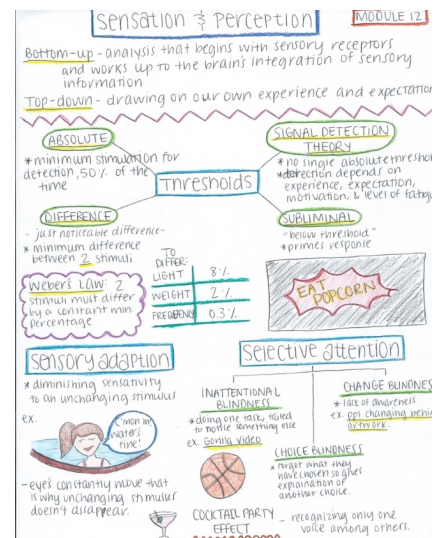 Sensation & Perception
MODULE 12
Bottom-up - analysis that begins with sensory receptors
and works up to the brain's integration of sensory
information
Top-down - drawing on our own experience and expectation
ABSOLUTE
* minimum stimulation for
detection, 50% of the
time
Thresholds
SIGNAL DETECTION
THEORY
* no single absolute threshol
* detection depends on
experience, expectation,
motivation, & level of fatigu
DIFFERENCE
- just noticeable difference -
* minimum difference
between 2 stimuli
SUBLIMINAL
"below threshold"
* primes response
Weber's Law: 2
stimuli must differ
by a constant min.
percentage
TO
DIFFER:
LIGHT 8%
WEIGHT 2%
FREQUENCY 0.3%
EAT
POPCORN
Sensory adaption
* diminishing sensativity
to an unchanging stimulus
ex.
C'mon in,
water's
fine!
- eye's constantly move that
is why unchanging stimulus
doesn't disappear.
Selective attention
INATTENTIONAL
BLINDNESS
* doing one task, failed
to notice something else
ex. Gorilla Video
CHANGE BLINDNES
* lack of awareness
ex. ppl changing behin
artwork.
CHOICE BLINDNESS
* forget what they
have chosen so gives
explaination of
another choice.
COCKTAIL PARTY
EFFECT
- recognizing only one
voice among others.